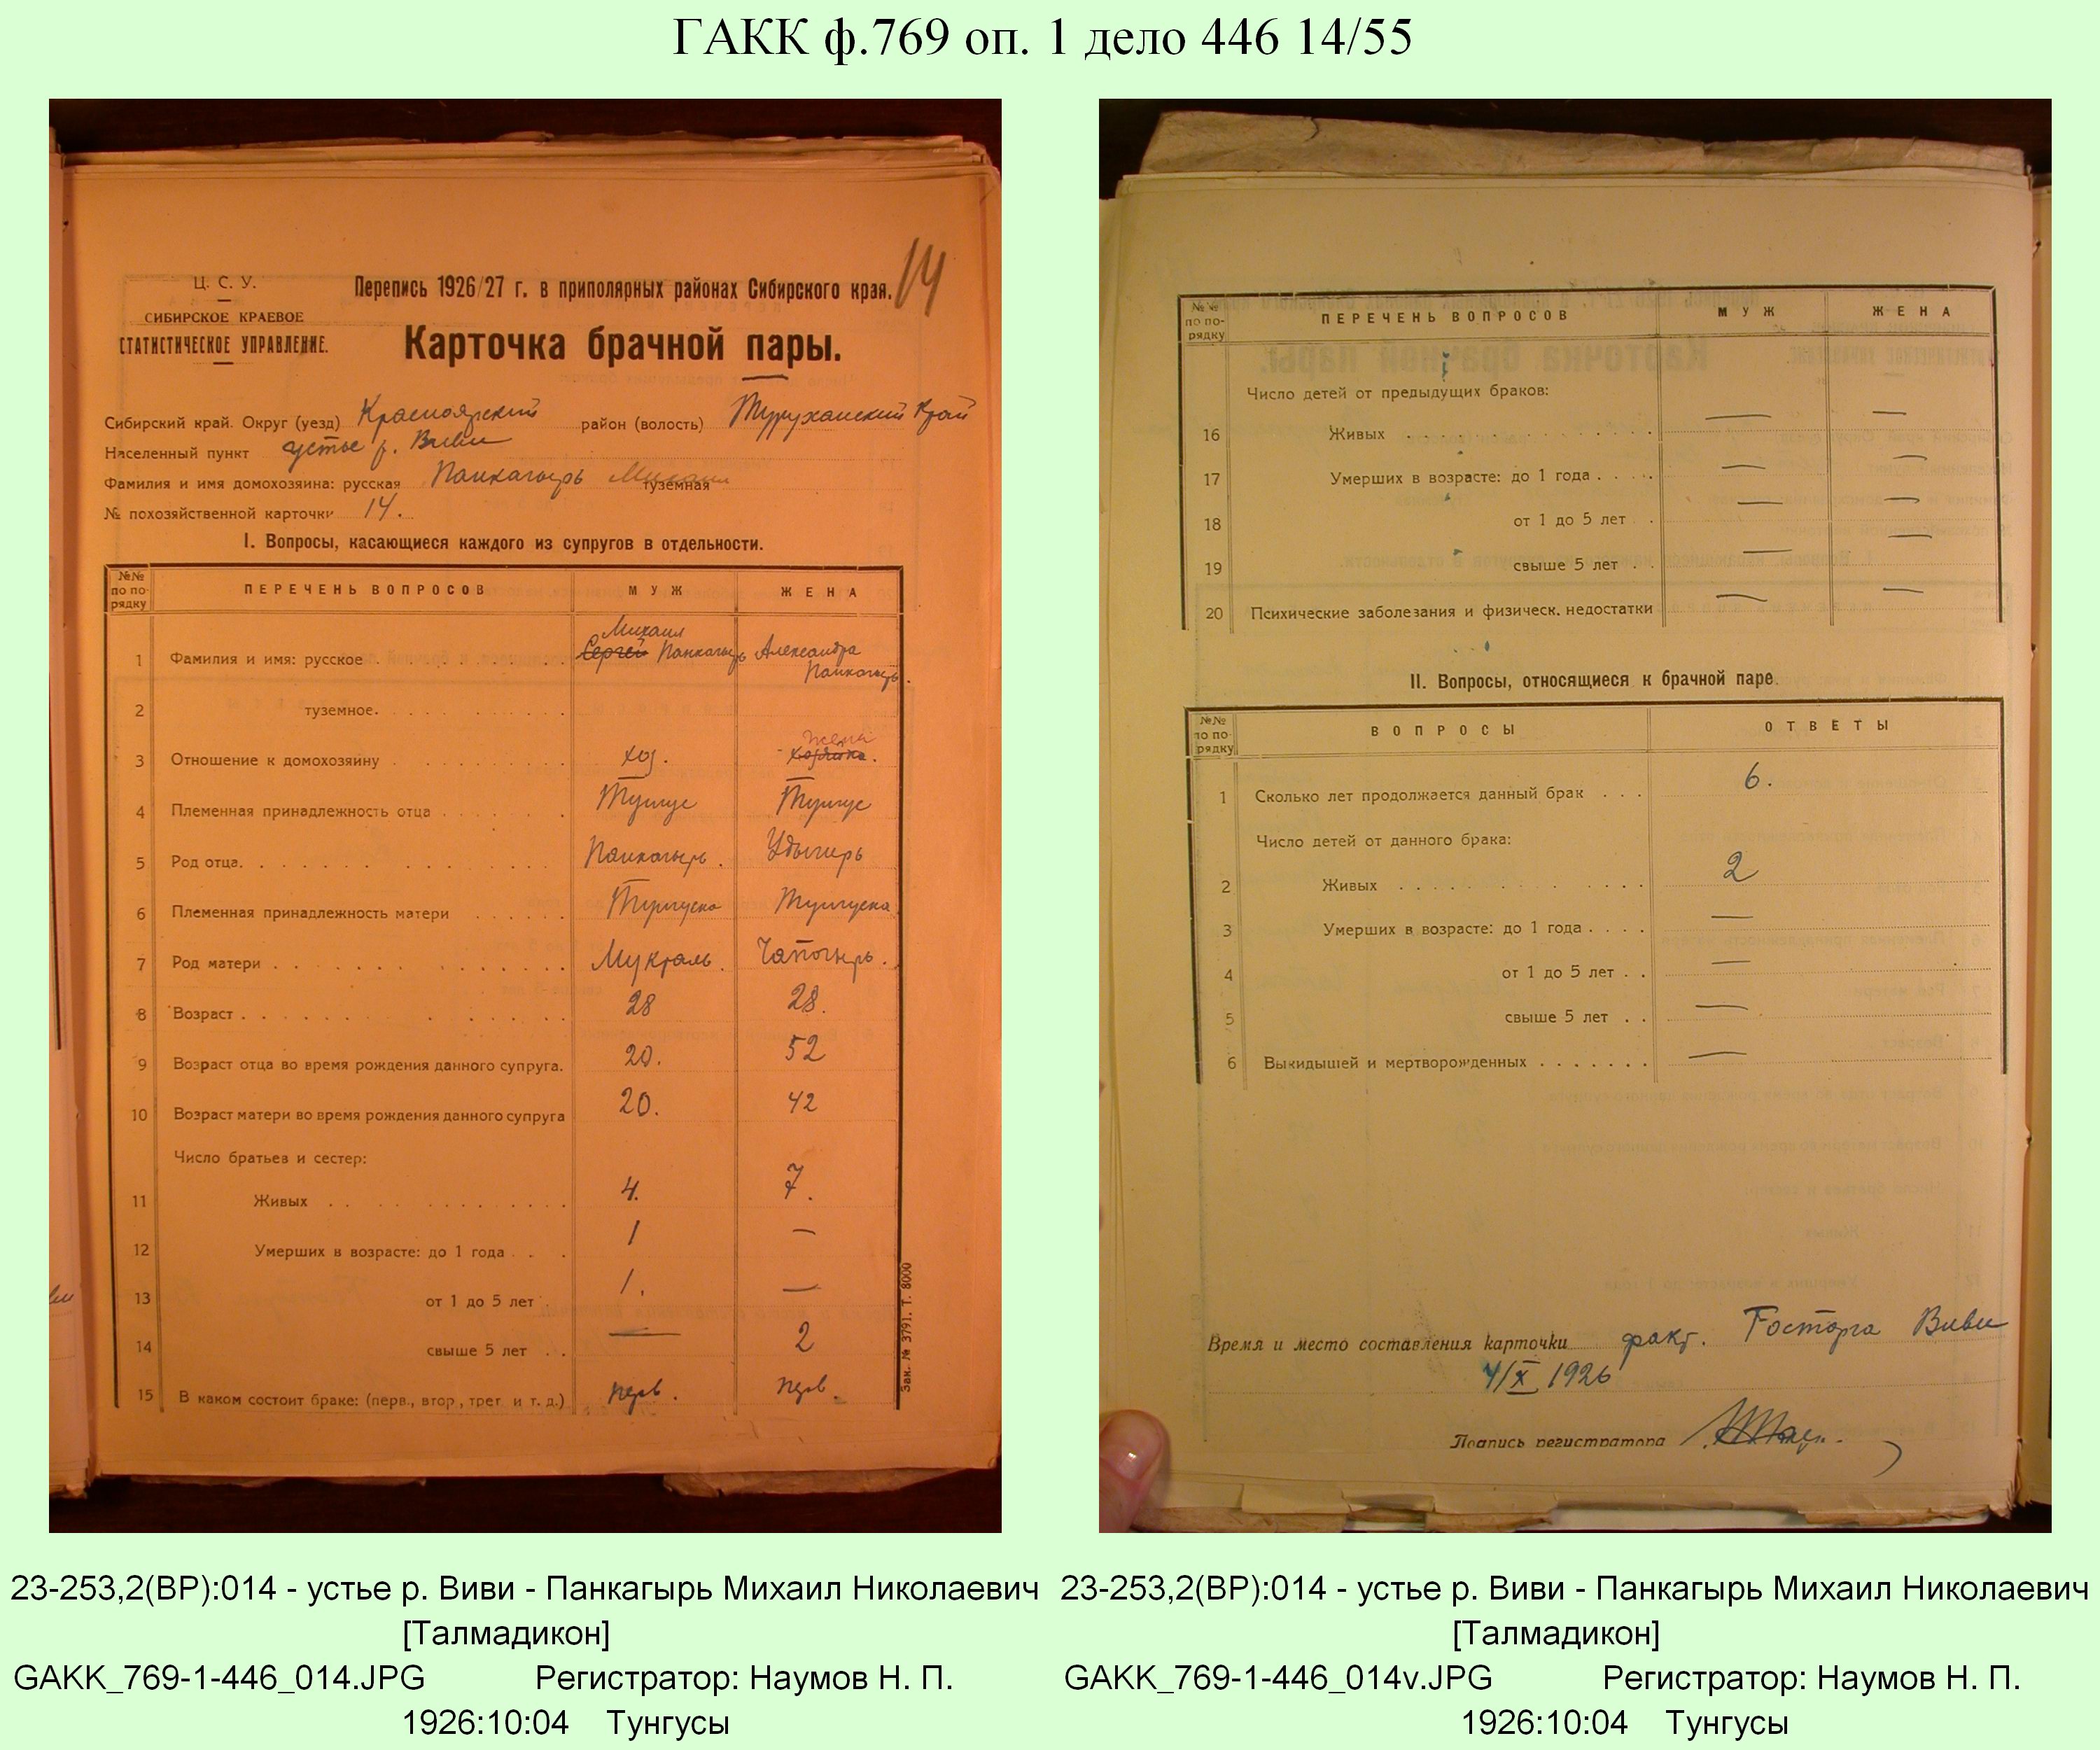 ГАКК ф.769 оп. 1 дело 446 14/55
14
Ц. С. У.
СИБИРСКОЕ КРАЕВОЕ
СТАТИСТИЧЕСКОЕ УПРАВЛЕНИЕ.
Перепись 1926/27 г. в приполярных районах Сибирского края.
Карточка брачной пары.
Сибирский край. Округ (уезд) Красноярский район (волость) Туруханский Край
Населенный пункт устье р. Виви
Фамилия и имя домохозяина: русская Панкагырь Михаил туземная
№ похозяйственной карточки 14.
I. Вопросы, касающиеся каждого из супругов в отдельности.
№№ по порядку ПЕРЕЧЕНЬ ВОПРОСОВ МУЖ ЖЕНА
1 Фамилия и имя: русское Сергей Михаил Панкагырь Александра Панкагырь.
2 туземное.
3 Отношение к домохозяину хоз. хозяйка. жена
4 Племенная принадлежность отца Тунгус Тунгус
5 Род отца. Панкагырь. Удыгирь
6 Племенная принадлежность матери Тунгуска Тунгуска
7 Род матери Мукталь. Чапогырь.
8 Возраст 28 28.
9 Возраст отца во время рождения данного супруга. 20. 52
10 Возраст матери во время рождения данного супруга 20. 42
Число братьев и сестер:
11 Живых 4. 7.
12 Умерших в возрасте: до 1 года 1 —
13 от 1 до 5 лет 1. —
14 свыше 5 лет — 2
15 В каком состоит браке: (перв., втор., трет. и т. д.) перв. перв.
Зак. № 3791. Т. 8000
№№ по порядку ПЕРЕЧЕНЬ ВОПРОСОВ МУЖ ЖЕНА
Число детей от предыдущих браков:
16 Живых — —
17 Умерших в возрасте: до 1 года — —
18 от 1 до 5 лет — —
19 свыше 5 лет — —
20 Психические заболезания и физическ. недостатки — —
II. Вопросы, относящиеся к брачной паре.
№№ по порядку ВОПРОСЫ ОТВЕТЫ
1 Сколько лет продолжается данный брак 6.
Число детей от данного брака:
2 Живых 2
3 Умерших в возрасте: до 1 года —
4 от 1 до 5 лет —
5 свыше 5 лет —
6 Выкидышей и мертворожденных —
Время и место составления карточки факт. Госторга Виви
4/X 1926
Подпись регистратора
23-253,2(ВР):014 - устье р. Виви - Панкагырь Михаил Николаевич
[Талмадикон]
GAKK_769-1-446_014.JPG Регистратор: Наумов Н. П.
1926:10:04 Тунгусы
23-253,2(ВР):014 - устье р. Виви - Панкагырь Михаил Николаевич
[Талмадикон]
GAKK_769-1-446_014v.JPG Регистратор: Наумов Н. П.
1926:10:04 Тунгусы